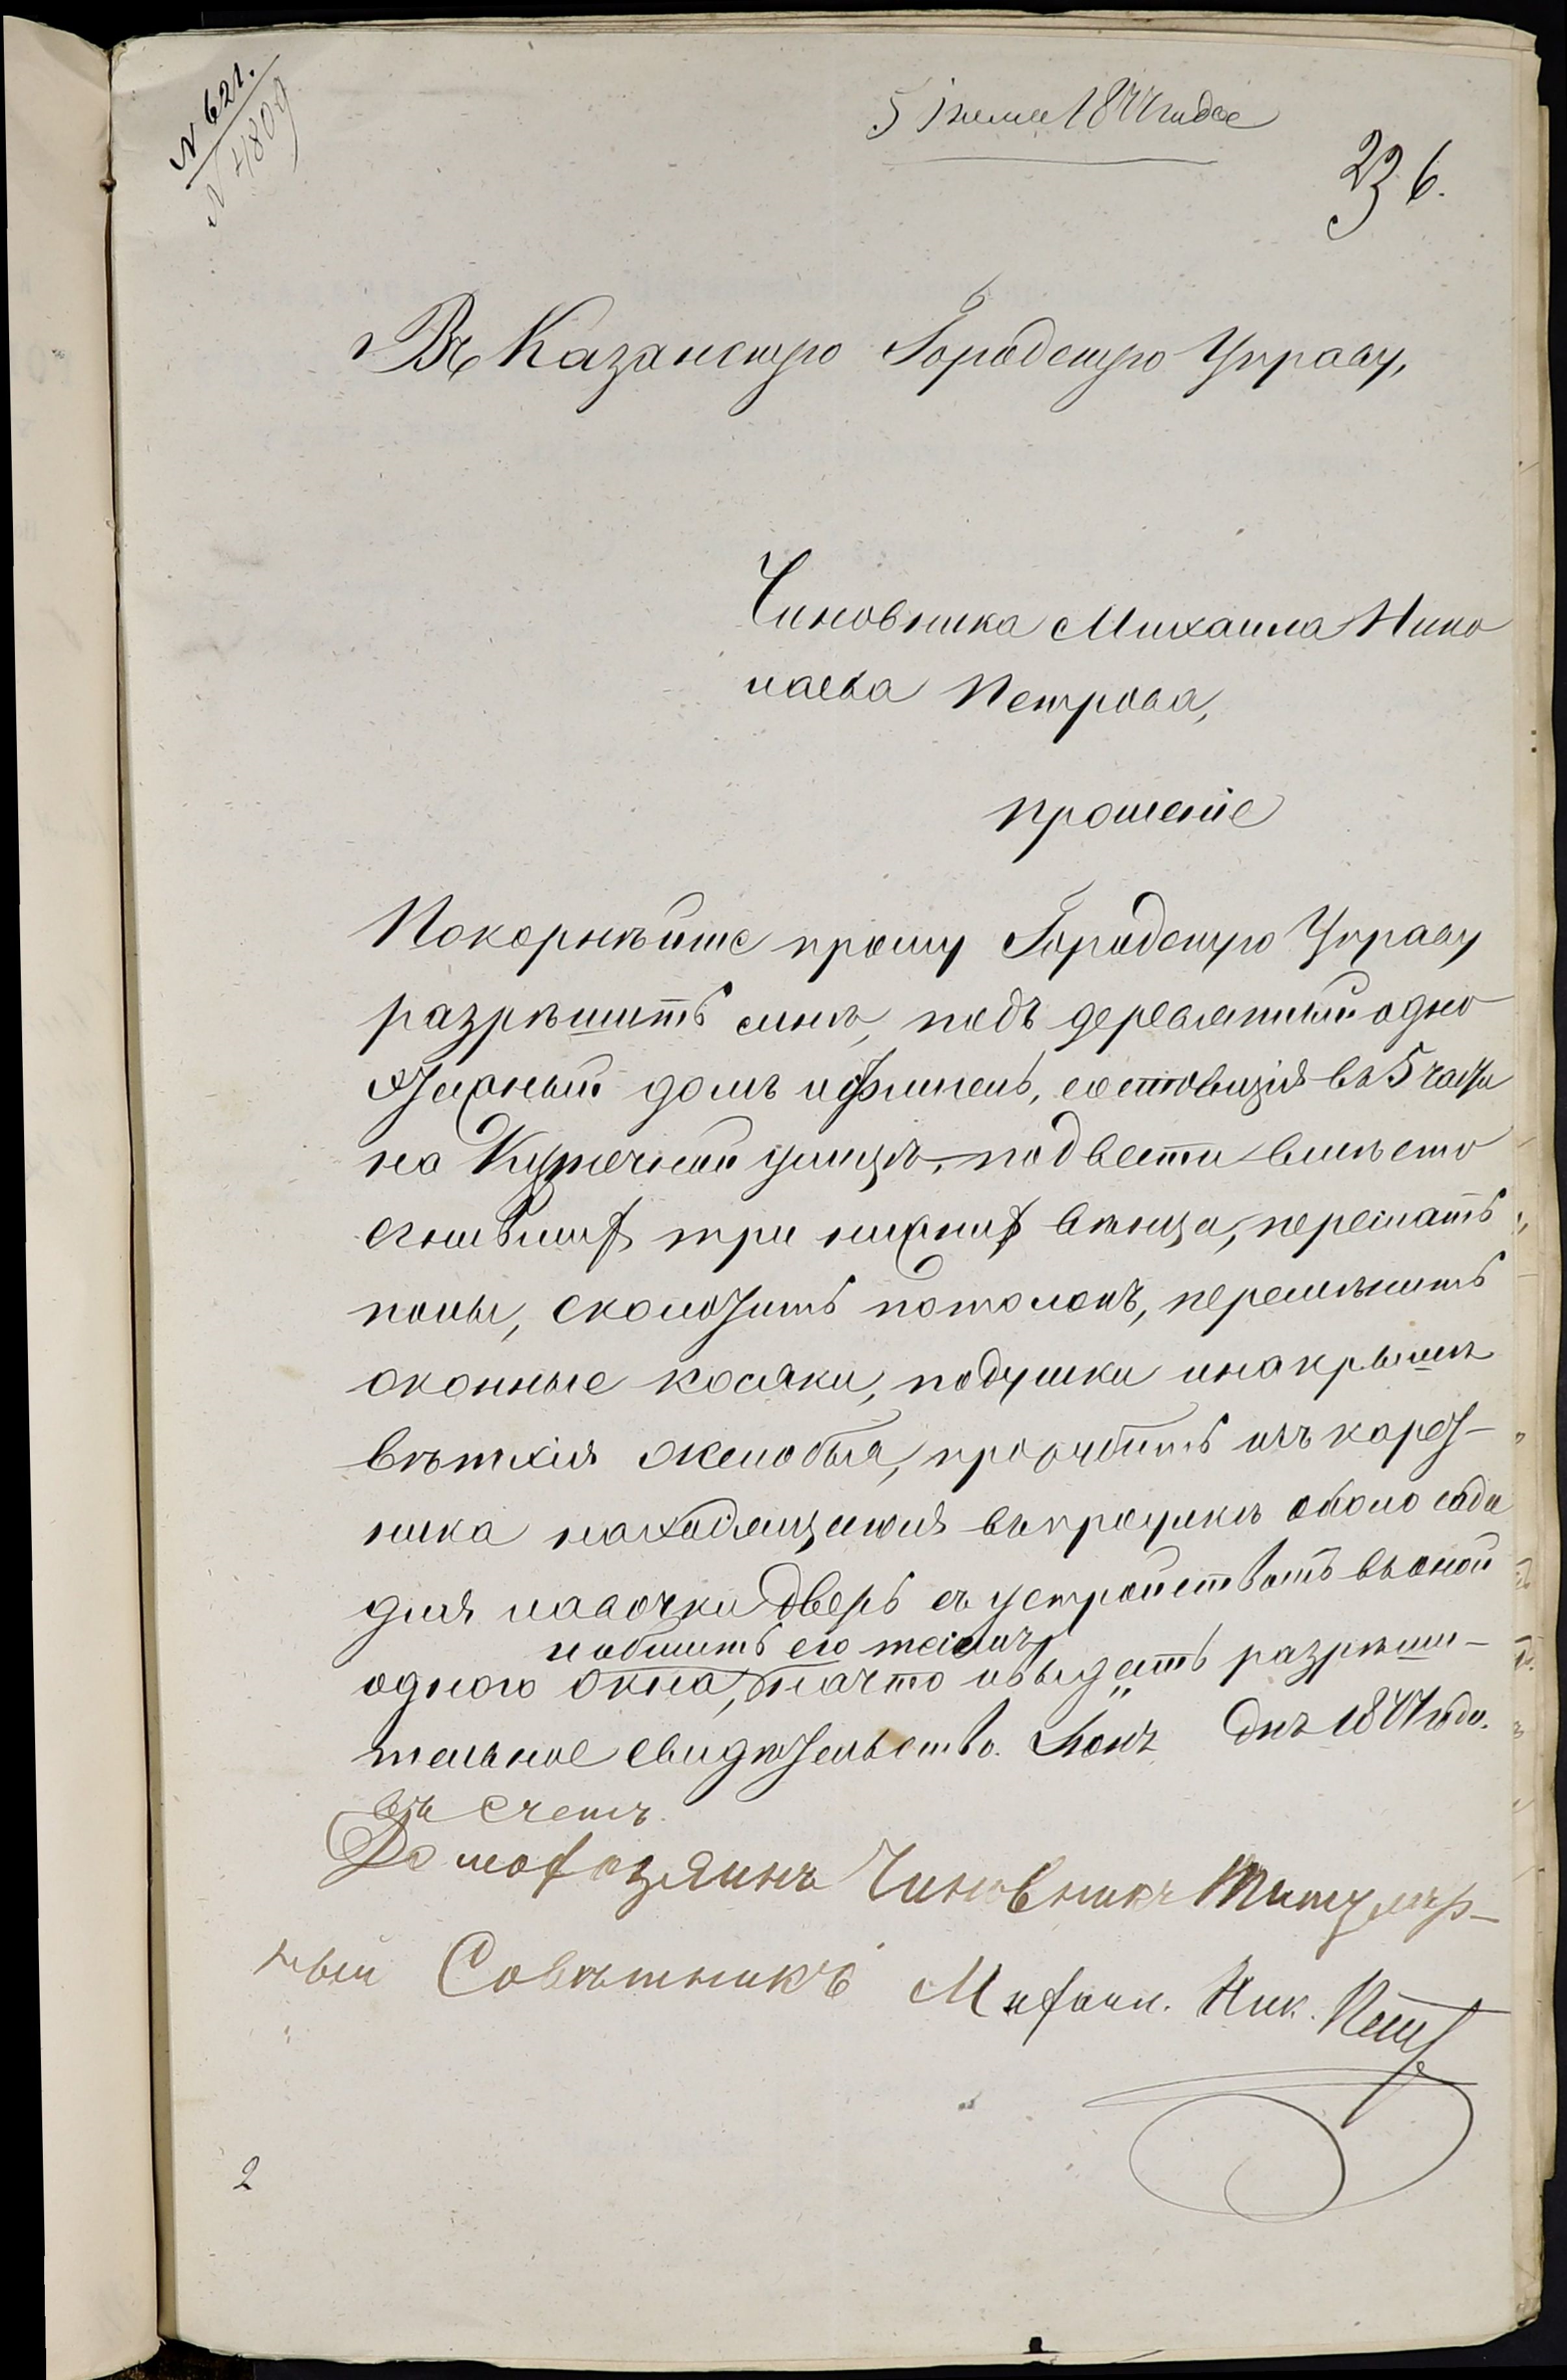 N 621.
N 4809
5 Іюня 1877 года
236.
Въ Казанскую Городскую Управу,
Чиновника Михаила Нико
лаева Петрова,
прошеніе
Покорнѣйше прошу Городскую Управу
разрѣшить мнѣ, подъ деревянный одно
этажный домъ и флигель, состоящія въ 5 части
на Кузнечной улицѣ, подвести вмѣсто
сгнившихъ три нижнихъ вѣнца, перебрать
полы, сколотить потолокъ, перемѣнить
оконные косяки, подушки и на крышѣ
вѣтхія желобья, прорубить изъ карет-
ника находящагося въ проулкѣ около сада
для лавочки дверь съ устройствомъ въ оной
и обшить его тесомъ
одного окна, на что и выдать разрѣши-
тельное свидѣтельство. Іюнь дня 1877 года.
Домохозяинъ Чиновникъ Титуляр-
ный Совѣтникъ Михаил. Ник. Петр
2